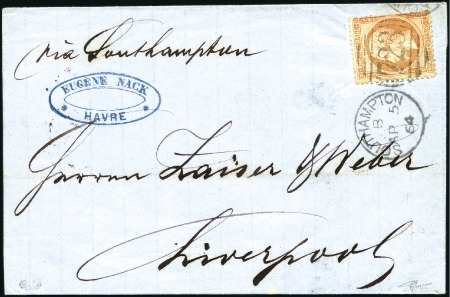 via Southampton
EUGÈNE NACK
HAVRE
SOUTHAMPTON
B
AP 5
64
Herren Zaiser & Weber
Liverpool